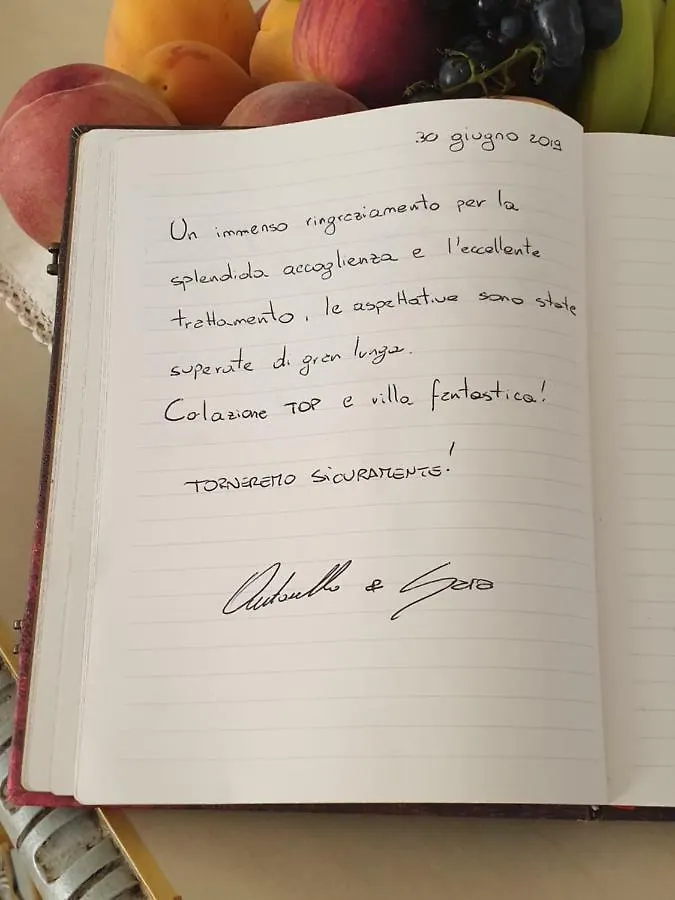 30 giugno 2019
Un immenso ringraziamento per la
splendida accoglienza e l'eccellente
trattamento, le aspettative sono state
superate di gran lunga.
Colazione TOP e villa fantastica!
TORNEREMO SICURAMENTE!
Antonello & Sara